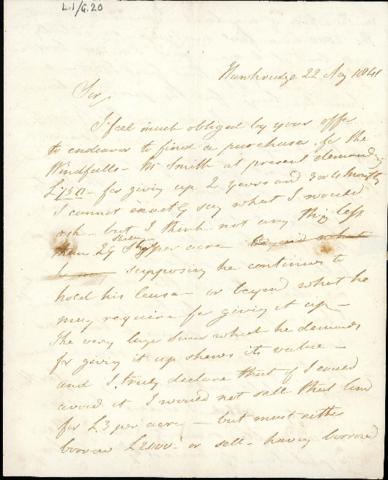 L.1/G.20
22 1848
Sir
I feel much obliged by your offer
to endeavor to find a purchaser for the
Windfalls - Mr Smith at present demands
£750 - for giving up 2 years and 3 months
I cannot exactly say what I would
ask - but I think not any thing less
than 25 per acre - beyond what
supposing he continues to
hold his lease - or beyond what he
may require for giving it up -
The very large sum which he demands
for giving it up shews its value -
and I truly declare that if I could
avoid it I would not sell that land
for £3 per acre - but must either
borrow £2000 - or sell - having borrowed